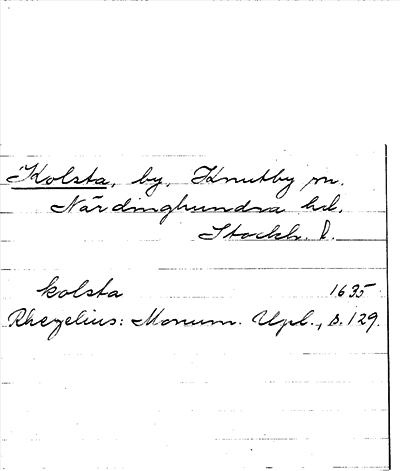 Kolsta, by, Knutby sn.
Närdinghundra hd.
Stockh. l.
kolsta 1635
Rhezelius: Monum. Upl., s. 129.